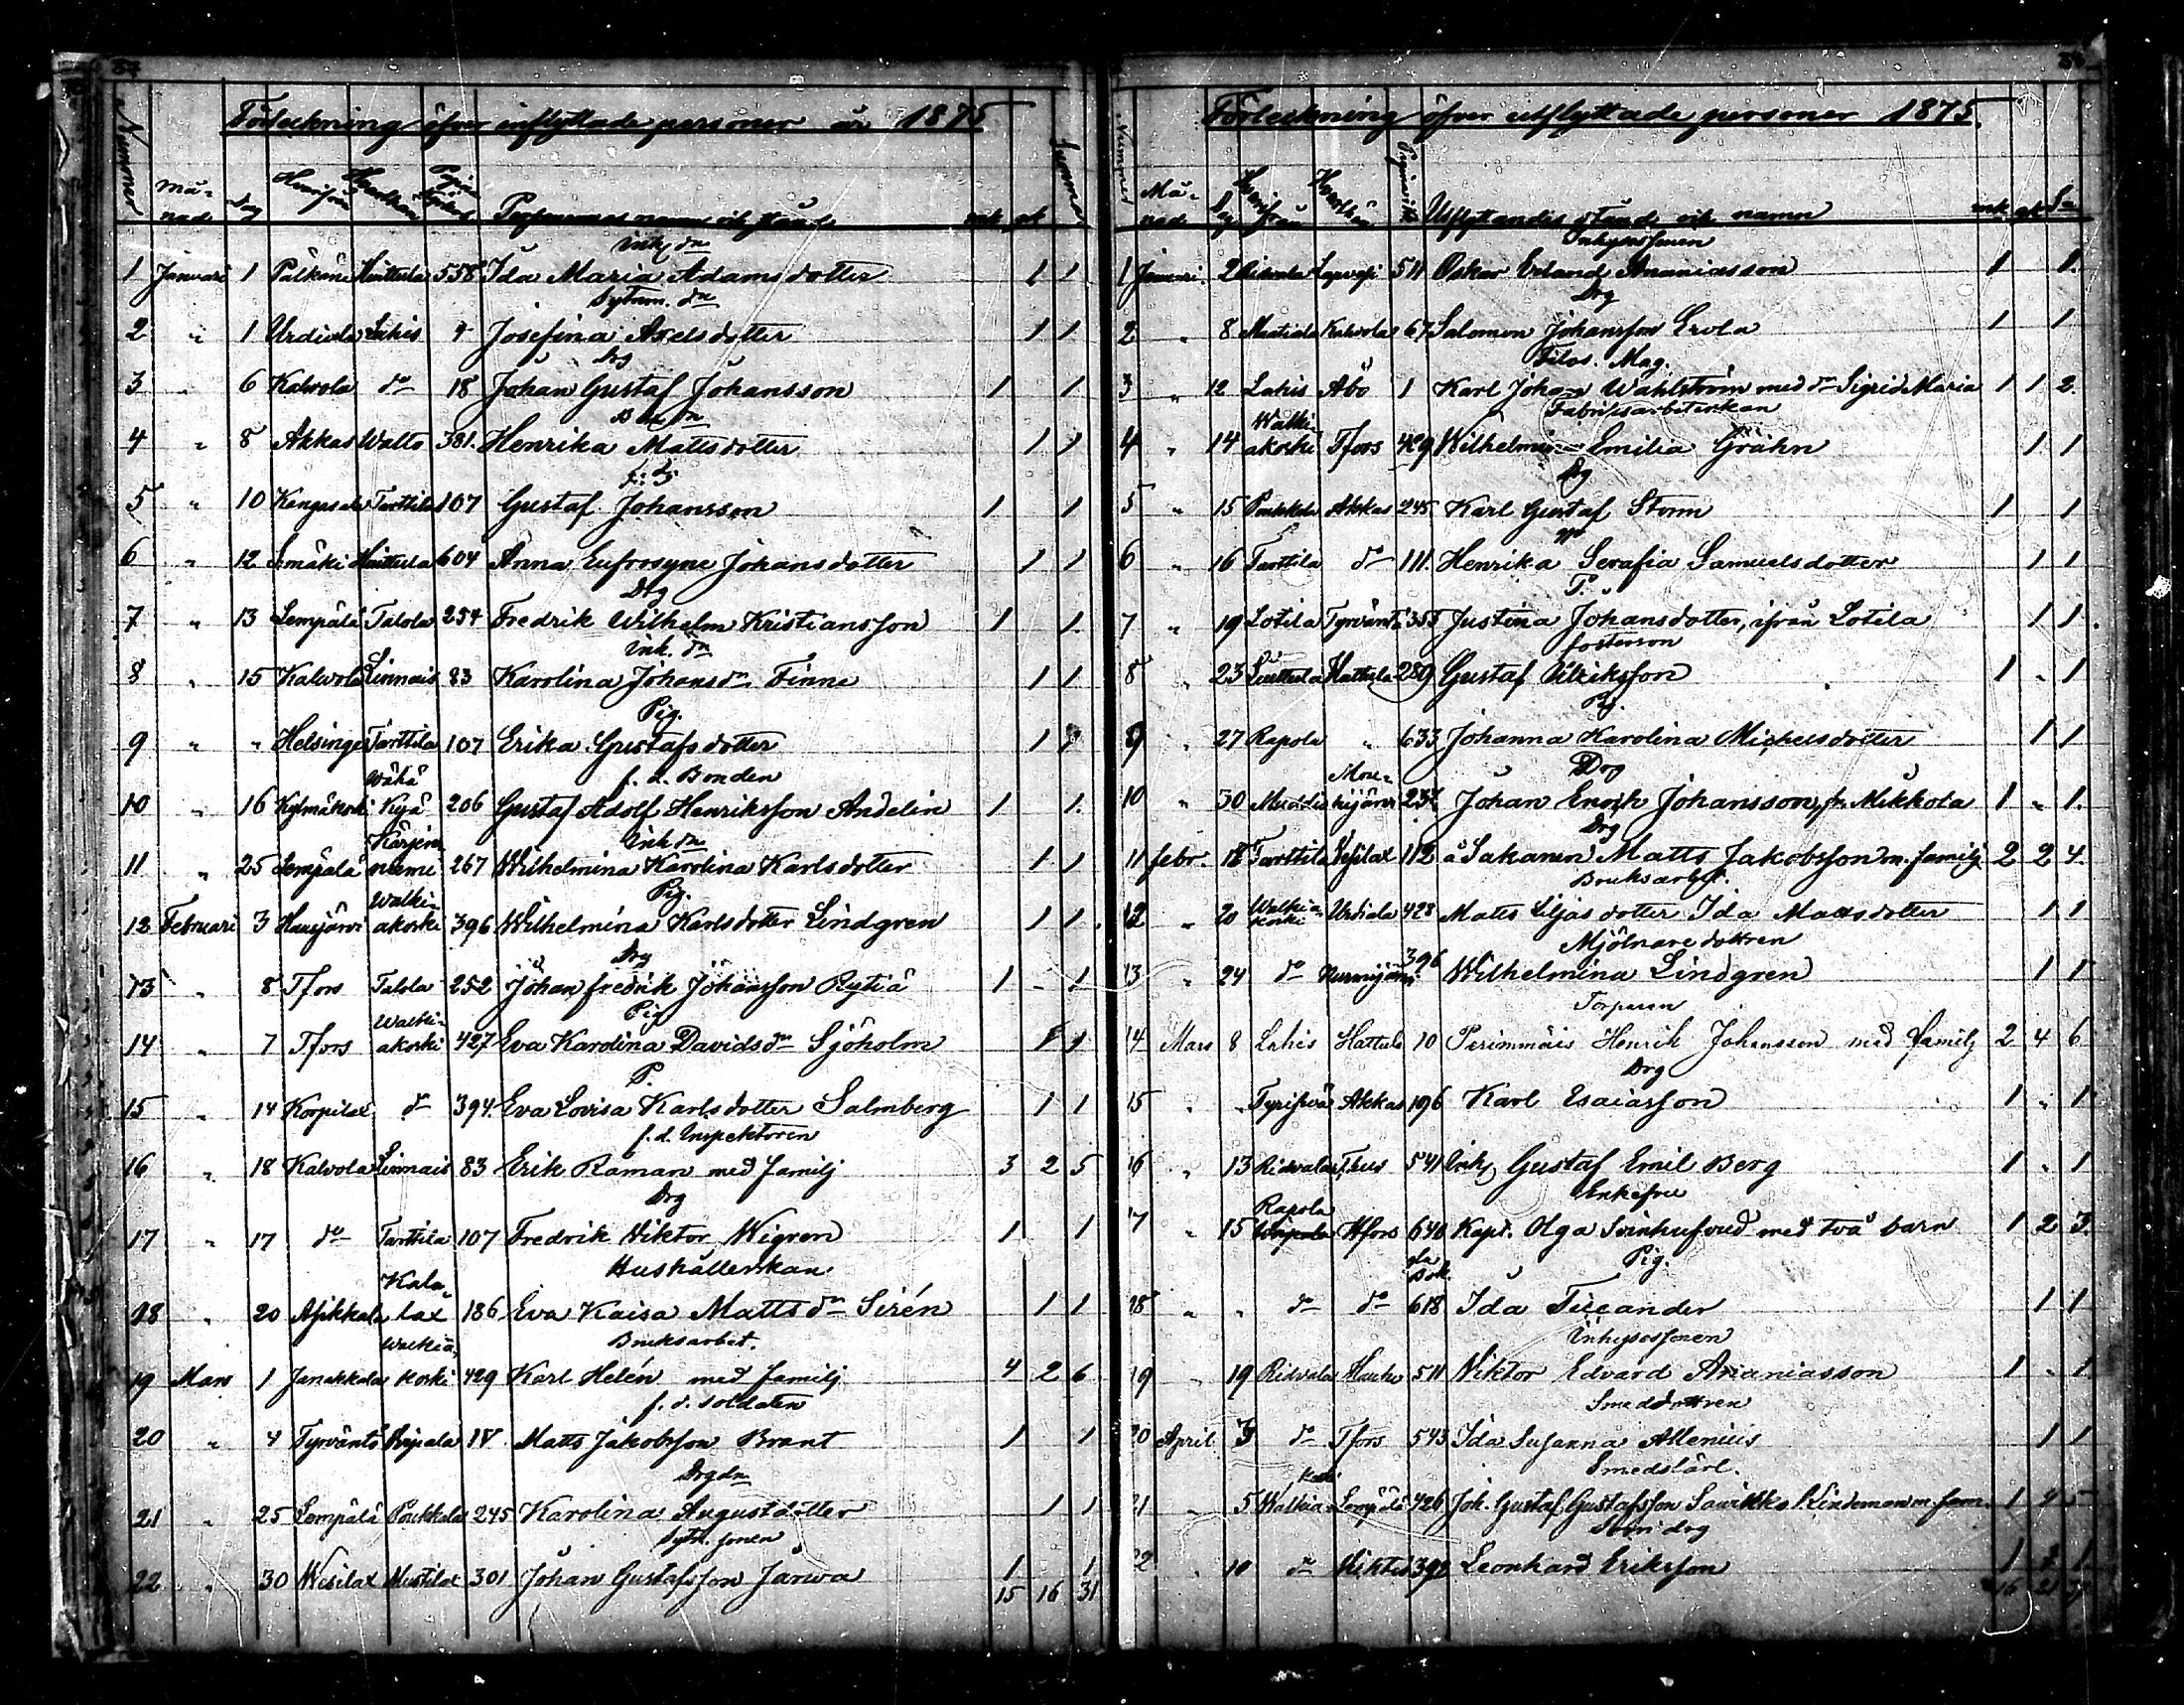 37
Förteckning öfver inflyttade personer år 1875
Nummer Månad Dag Hvarifrån Hvarthän Personernas namn och stånd mk qk Summa
inh. dn
1 Januari 1 Pälkäne Huittula 558 Ida Maria Adamsdotter 1 1
Sytnm. dn
2 " 1 Urdiala Lahis 4 Josefina Axelsdotter 1 1
Drg
3 " 6 Kalvola do 18 Johan Gustaf Johansson 1 1
4 " 8 Akkas Walto 381. Henrika Mattsdotter 1 1
5 " 10 Kangasala Tarttila 107 Gustaf Johansson 1 1
6 " 12 Somäki Huittula 604 Anna Eufrosyne Johansdotter 1 1
Drg
7 " 13 Lempälä Talola 254 Fredrik Wilhelm Kristiansson 1 1.
Inh. dn
8 " 15 Kalvola Linnais 83 Karolina Johansdn Finne 1 1
Pig.
9 " " Helsinge Tarttila 107 Erika Gustafsdotter 1 1
Wähä f. d. Bonden
10 " 16 Kylmäkoski Kyjä 206 Gustaf Adolf Henriksson Andelin 1 1.
Kärjen- Inh dn
11 " 25 Lempälä niemi 267 Wilhelmina Karolina Karlsdotter 1 1
Walki- Pig.
12 Februari 3 Hausjärvi akoski 396 Wilhelmina Karlsdotter Lindgren 1 1
Drg
13 " 8 Tfors Talola 252 Johan fredrik Johansson Rytiä 1 - 1
Walki- Pig
14 " 7 Tfors akoski 427 Eva Karolina Davidsdn Sjöholm 1 1
P.
15 " 14 Korpilax do 394. Eva Lovisa Karlsdotter Salmberg 1 1
f. d. Inspektoren
16 " 18 Kalvola Linnais 83 Erik Raman med familj 3 2 5
Drg
17 " 17 do Tarttila 107 Fredrik Viktor Wigren 1 1
Kala- Hushållerskan
18 " 20 Asikkala lax 186 Eva Kaisa Mattsdn Sirén 1 1
Walkia- Bruksarbet.
19 Mars 1 Janakkala koski 429 Karl Helén med familj 4 2 6
f. d. soldaten
20 " 4 Tyrväntö Woipala IV Matts Jakobsson Brant 1 1
Drgdn
21 " 25 Lempälä Poukkala 245 Karolina Augustdotter 1 1
Sytn. sonen
22 " 30 Wesilax Uustila 301 Johan Gustafsson Järwa 1 1
15 16 31
38
Förteckning öfver utflyttade personer 1875.
Nummer Månad Dag Hvarifrån Hvarthän Utflyttandes stånd och namn mk qk Sa
Inhysessonen
1 Januari. 2 Ridvala Loppi 511 Oskar Erland Ananiasson 1 1.
Drg
2 " 8 Mustiala Kalvola 67 Salomon Johansson Erola 1 1
Filos. Mag.
3 " 12 Lahis Åbo 1 Karl Johan Wahlström med dn Sigrid Maria 1 1 2.
Walki- Fabriksarbeterskan
4 " 14 akoski Tfors 429 Wilhelmina Emilia Gråhn 1 1
Dg
5 " 15 Poukkala Akkas 245 Karl Gustaf Storm 1 1
6 " 16 Tarttila do 111. Henrika Serafia Samuelsdotter 1 1
P.
7 " 19 Lotila Tyrväntö 355 Justina Johansdotter, ifrån Lotila 1 1.
fosterson
8 " 23 Huittula Hattula 289 Gustaf Ulriksson 1 " 1
Pig.
9 " 27 Rapola " 633 Johanna Karolina Michelsdotter 1 1
Mou- Drg
10 " 30 hijärvi 237 Johan Enoch Johansson, fr. Mikkola 1 " 1.
Drg
11 febr. 18 Tarttila Vesilax 112 å Sakanen Matts Jakobsson m. familj 2 2 4.
Bruksarbet.
12 " 20 Walkiakoski Urdiala 428 Matts Eljas dotter Ida Mattsdotter 1 1
Mjölnaredottren
13 " 24 do Nurmijärvi 396 Wilhelmina Lindgren 1 1
Torparen
14 Mars 8 Lahis Hattula 10 Perimmäis Henrik Johansson med familj 2 4 6
Drg
15 " " Akkas 196 Karl Esaiasson 1 " 1
16 " 13 Ridvala 541 Inh. Gustaf Emil Berg 1 " 1
Rapola Enkefru
17 " 15 Woipala Hfors 640 Kapt. Olga Svinhufvud med två barn 1 2 3.
Pig.
18 " " do do 618 Ida Tucander 1 1
Inhysessonen
19 " 19 Ridvala Hauho 511 Viktor Edvard Ananiasson 1 " 1.
Smeddottren
20 April 3 do Tfors 543 Ida Susanna Allenius 1 1
koski Smedslärl.
21 " 5 Walkia Lempälä 426 Joh. Gustaf Gustafsson Sawikko l. Lindeman m. fam. 1 4 5
22 " 10 do 398 Leonhard Eriksson 1 1